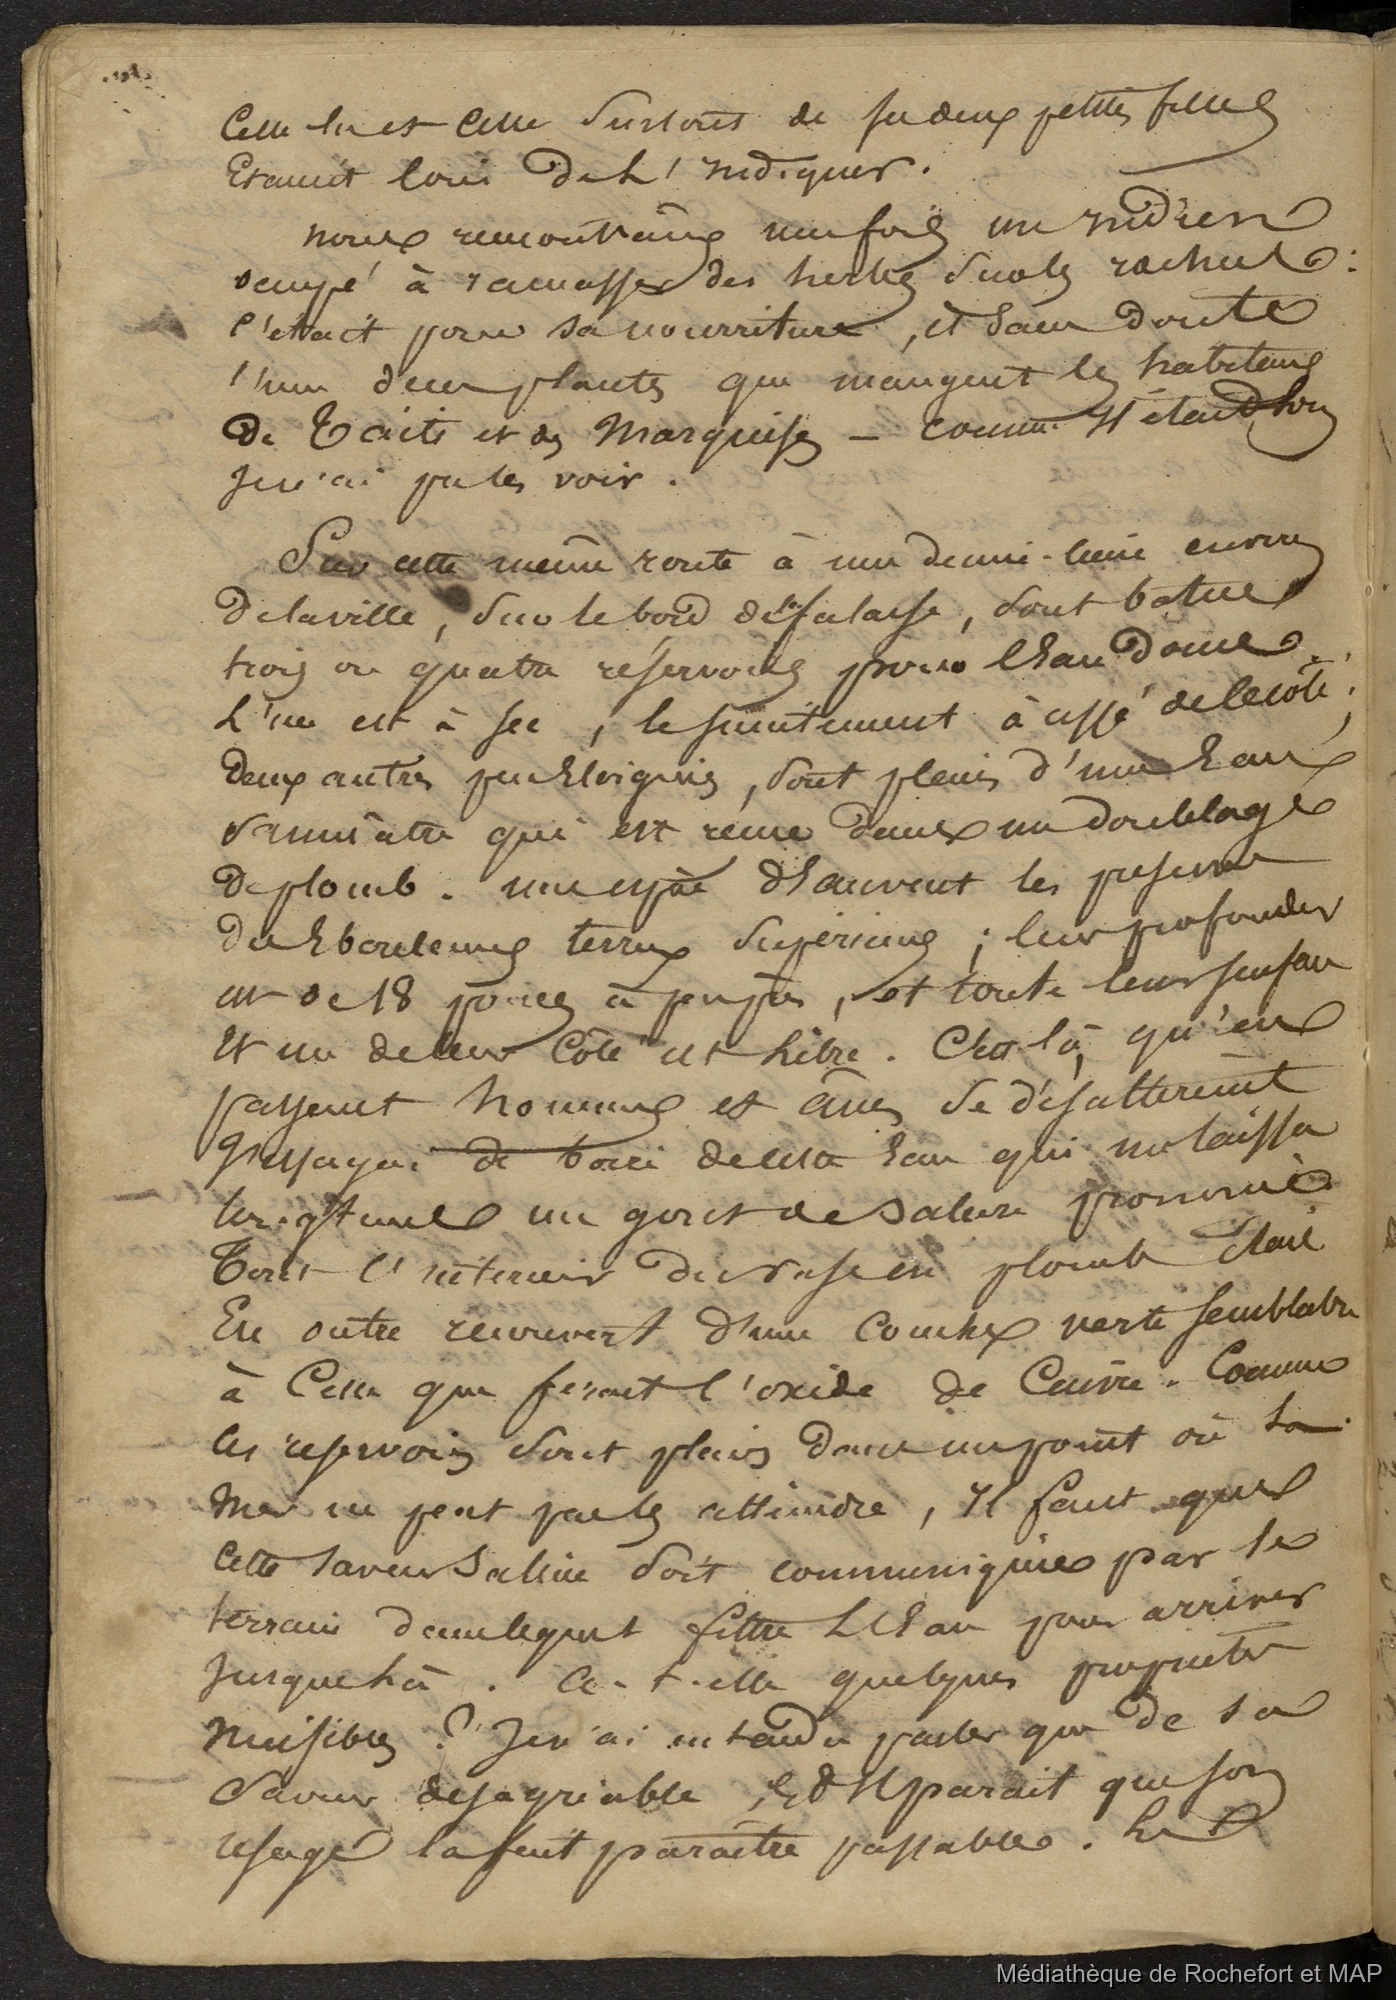 Celle la et celle surtout de ses deux petites filles
Etaient loin de L'Indiquer.
nous rencontrâmes une fois un Indien
occupé à ramasser des herbes sur les rochers :
C'était pour sa nourriture, et sans doute
l'une des plantes que mangent les habitans
de Taiti et des Marquises — comme Il était loin
Je n'ai pu les voir.
Sur cette même route à une demie-lieue environ
De la ville, sur le bord de la falaise, sont batus
trois ou quatre réservoirs pour l'Eau douce.
L'un est à sec, le suintement à cessé de ce côté ;
Deux autres peu Eloignés, sont pleins d'une Eau
saumâtre qui est reçue dans un doublage
De plomb. une espèce d'auvent les préserve
Des Eboulemens terreux supérieurs ; leur profondeur
est de 18 pouces à peu près, et toute leur surface
Et un de leur Côté est Libre. C'est là, qu'en
passant hommes et ânes se désalterent
J'essayai de boire de cette Eau qui me laissa
longtems un gout de salure prononcé
Tout l'intérieur du vase en plomb était
En outre recouvert d'une couche verte semblable
à Celle que ferait l'oxide de Cuivre. Comme
les reservoirs sont placés dans un point où la
Mer ne peut pas les atteindre, Il faut que
cette saveur Saline soit communiquée par le
terrain dans lequel filtre L'Eau pour arriver
Jusque là. a-t-elle quelques propriétés
Nuisibles ? Je n'ai entendu parler que de sa
Saveur désagréable, Et Il parait que son
usage la fait paraître passable. Le